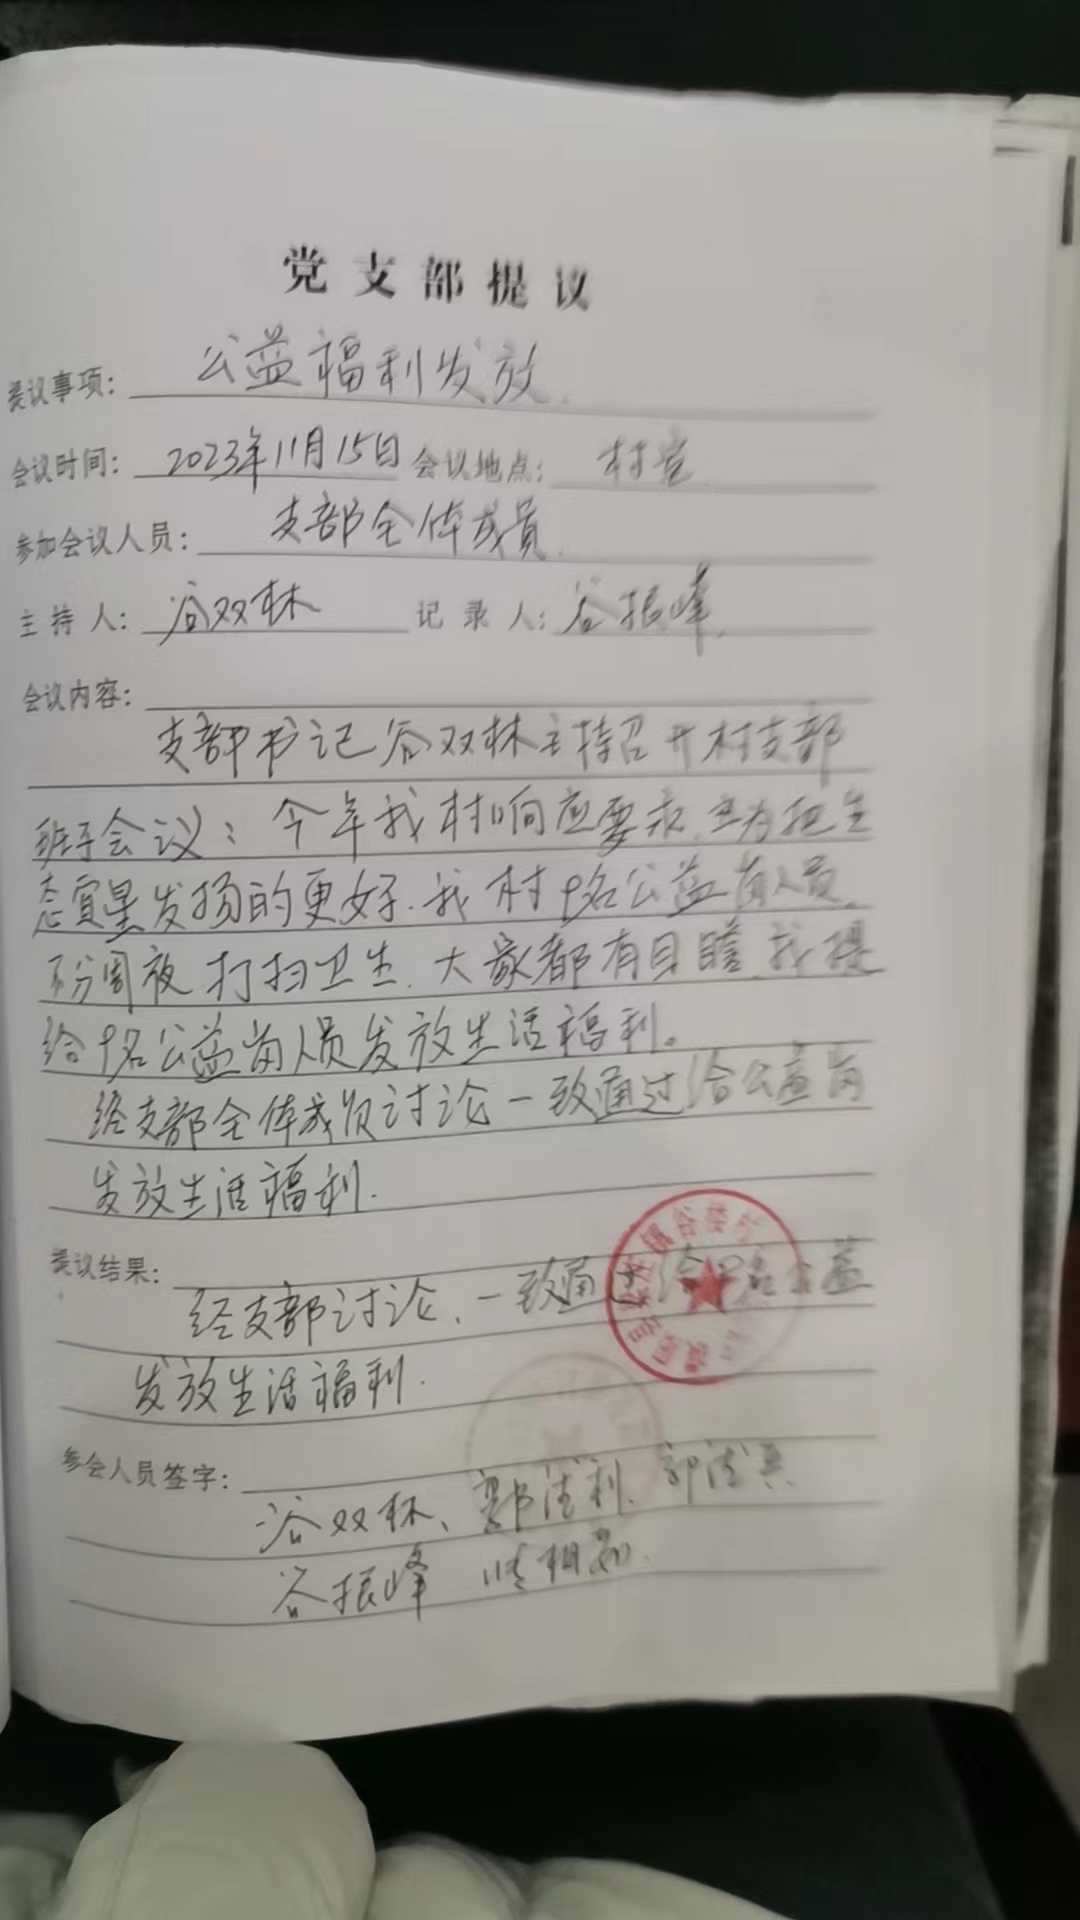 党支部提议
提议事项： 公益福利发放
会议时间： 2023年11月15日 会议地点： 村室
参加会议人员： 支部全体成员
主持人： 谷双林 记录人： 谷振峰
会议内容：
支部书记谷双林主持召开村支部
班子会议：今年我村响应要求，为把生
态宜星发扬的更好．我村9名公益岗人员
不分周夜．打扫卫生．大家都有目瞻．我提
给9名公益岗人员发放生活福利。
经支部全体成员讨论一致通过给公益岗
发放生活福利．
提议结果：
经支部讨论．一致通过给9名公益
发放生活福利．
参会人员签字：
谷双林、郭法利、郭法兵
谷振峰